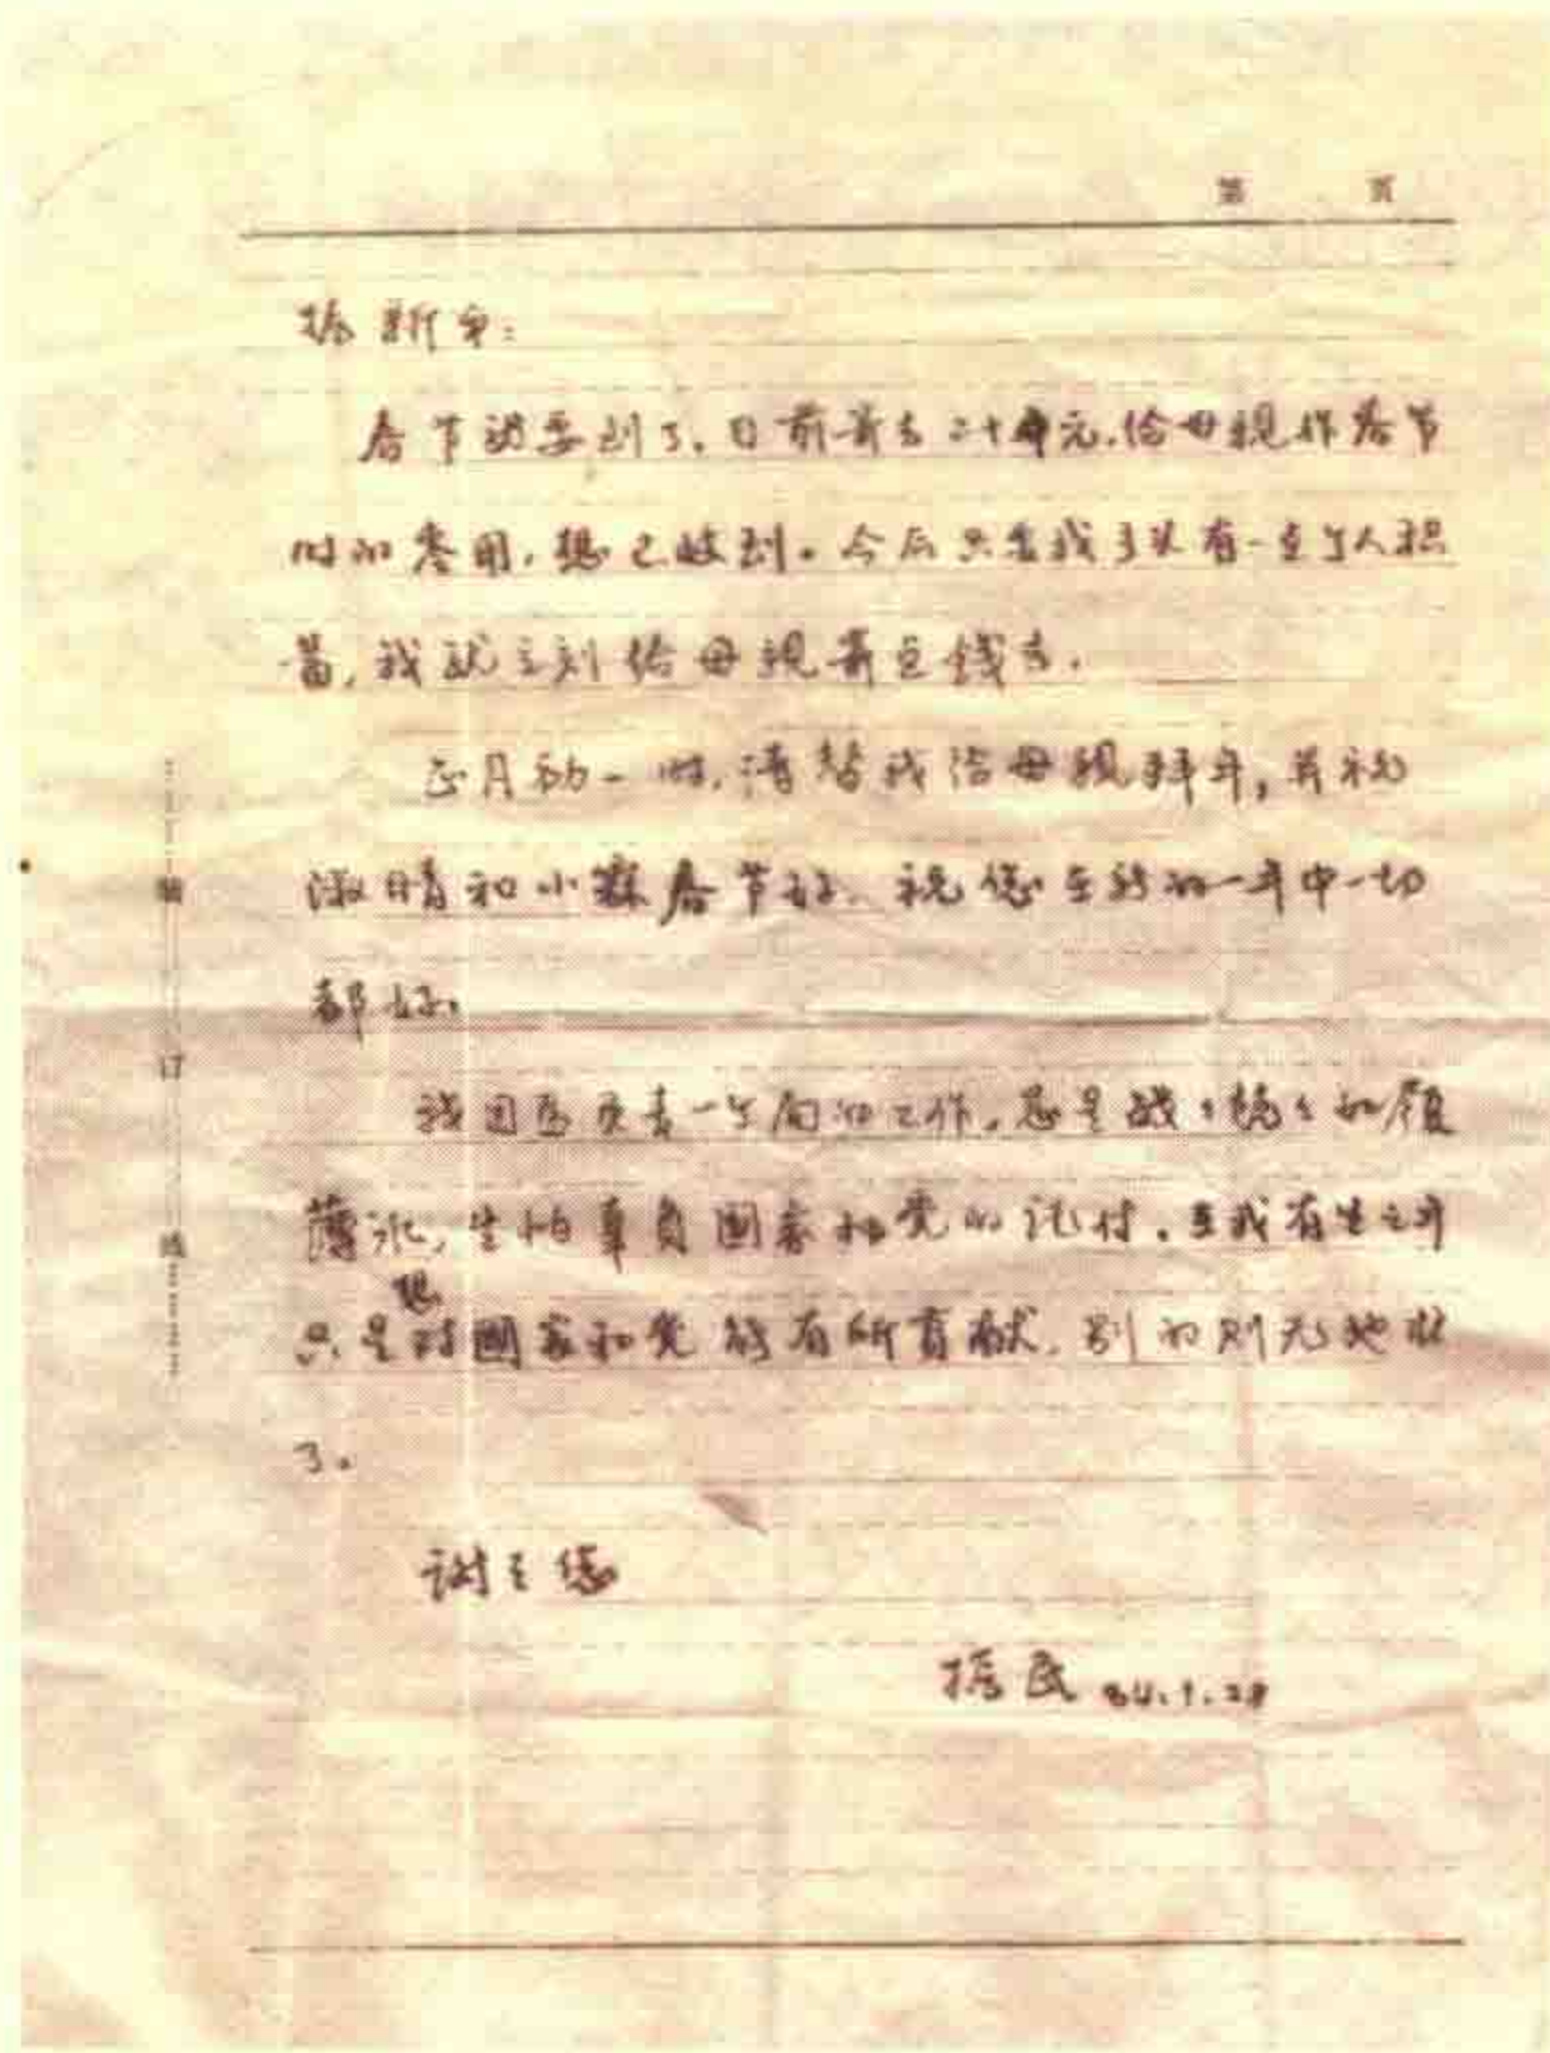 第 页
振新弟:
春节就要到了,日前寄去二十元,给母亲作春节
时的零用,想已收到。今后只要我手头有一点个人积
蓄,我就立刻给母亲寄点钱去.
正月初一时,请替我给母亲拜年,并祝
淑晴和小霖春节好.祝您在新的一年中一切
都好。
我因为负责一个局的工作,总是战々兢々如履
薄冰,生怕辜负国家和党的托付.在我有生之年
想
只是对国家和党能有所贡献.别的则无他求
了。
谢々您
振民 84.1.28
装
订
线